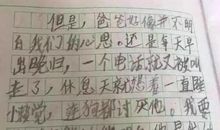 但是，爸爸好像并不明
白我们的心思。还是每天早
出晚归，一个电话就又被叫
走了，休息天就想着一直睡
小懒觉，连狗都讨厌他。我要